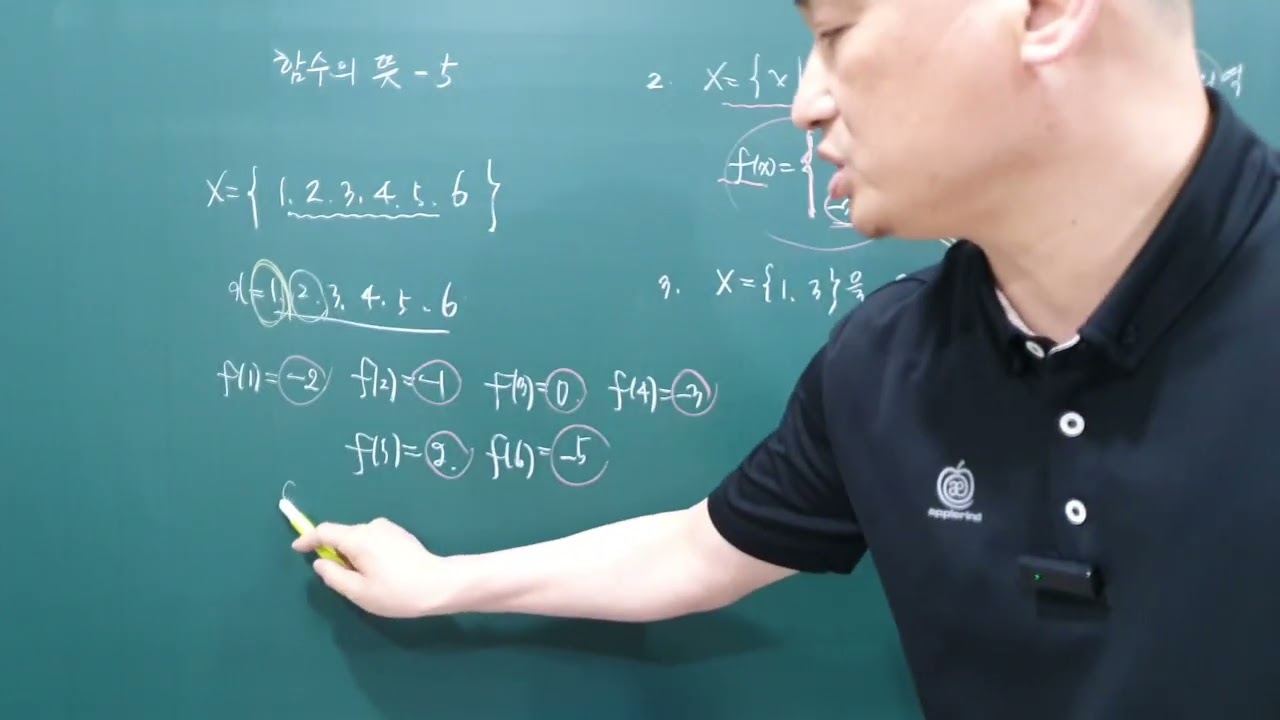 함수의 뜻 - 5
X = { 1. 2. 3. 4. 5. 6 }
x = 1. 2. 3. 4. 5. 6
f(1) = -2 f(2) = -1 f(3) = 0. f(4) = -3
f(5) = 2. f(6) = -5
2. X = { x |
f(x) = {
3. X = {1. 3}을
applerind